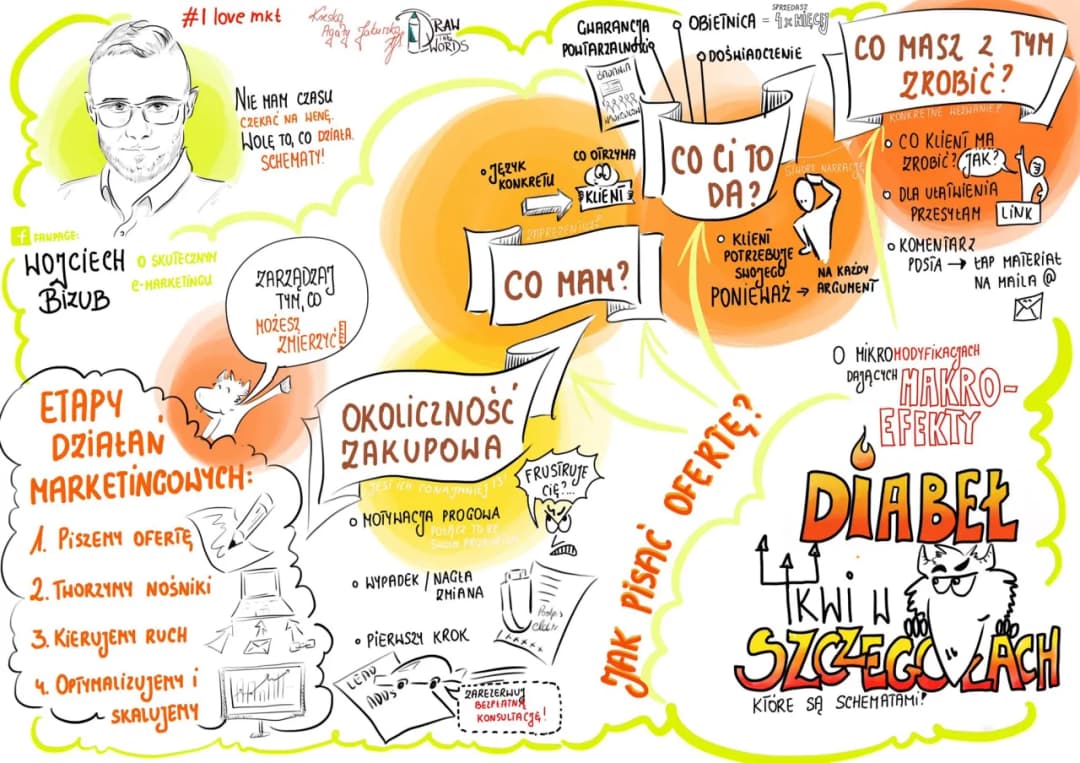 #I love mkt
Kreska
Agaty Jakuszko
DRAW
THE
WORDS
NIE MAM CZASU
CZEKAĆ NA WENĘ.
WOLĘ TO, CO DZIAŁA.
SCHEMATY!
f FANPAGE:
WOJCIECH
BIZUB
O SKUTECZNYM
E-MARKETINGU
ZARZĄDZAJ
TYM, CO
MOŻESZ
ZMIERZYĆ!
ETAPY
DZIAŁAŃ
MARKETINGOWYCH:
1. PISZEMY OFERTĘ
2. TWORZYMY NOŚNIKI
3. KIERUJEMY RUCH
4. OPTYMALIZUJEMY I
SKALUJEMY
JAK PISAĆ OFERTĘ?
OKOLICZNOŚĆ
ZAKUPOWA
JEST ICH CONAJMNIEJ 15!
MOTYWACJA PROGOWA
FRUSTRUJE
CIĘ?...
WYPADEK / NAGŁA
ZMIANA
PIERWSZY KROK
LEAD
ADDS
ZAREZERWUJ
BEZPŁATNĄ
KONSULTACJĘ!
CO MAM?
ZAPREZENTUJ?
JĘZYK
KONKRETU
CO OTRZYMA
KLIENT?
CO CI TO
DA?
GWARANCJA
POWTARZALNOŚCI
BADANIA
OBIETNICA =
SPRZEDASZ
4 x WIĘCEJ
DOŚWIADCZENIE
STWÓRZ NARRACJĘ
KLIENT
POTRZEBUJE
SWOJEGO
PONIEWAŻ →
NA KAŻDY
ARGUMENT
CO MASZ Z TYM
ZROBIĆ?
KONKRETNE WEZWANIE?
CO KLIENT MA
ZROBIĆ?
JAK?
DLA UŁATWIENIA
PRZESYŁAM
LINK
KOMENTARZ
POSTA → ŁAP MATERIAŁ
NA MAILA @
O MIKROMODYFIKACJACH
DAJĄCYCH
MAKRO-
EFEKTY
DIABEŁ
TKWI W
SZCZEGÓŁACH
KTÓRE SĄ SCHEMATAMI!